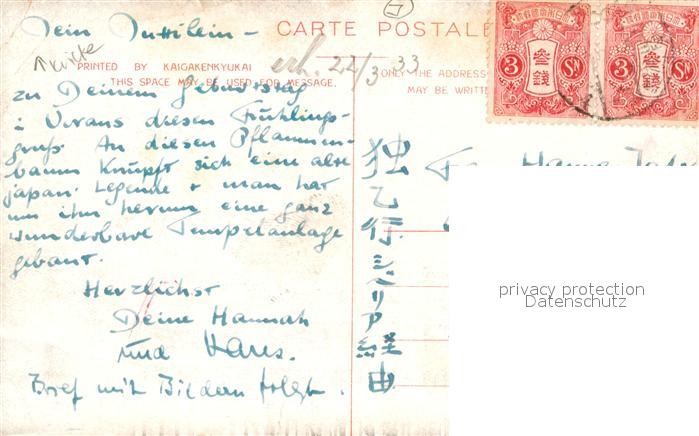 Dein
CARTE POSTALE
PRINTED BY KAIGAKENKYUKAI
THIS SPACE MAY BE USED FOR MESSAGE.
erh. 22/3 33
ONLY THE ADDRESS
MAY BE WRITTEN
zu Deinem Geburtstag
i. Voraus diesen Frühlings-
gruß. An diesen Pflaumen-
baum knüpft sich eine alte
japan. Legende + man hat
um ihn herum eine ganz
wunderbare Tempelanlage
gebaut.
Herzlichst
Deine Hannah
und Hans.
Brief mit Bildern folgt.
3 参銭 SN
3 参銭 SN
独乙行.シベリア経由
privacy protection
Datenschutz